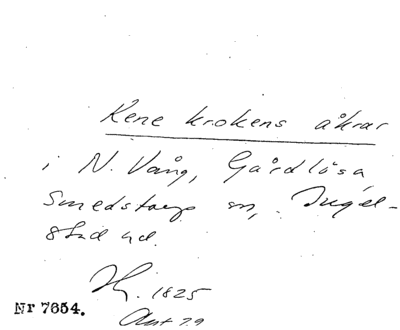 Rene krokens åkrar
i N. Vång, Gårdlösa,
Smedstorps sn, Ingel-
stad hd.
Hy. 1825
Akt 29
Nr 7654.